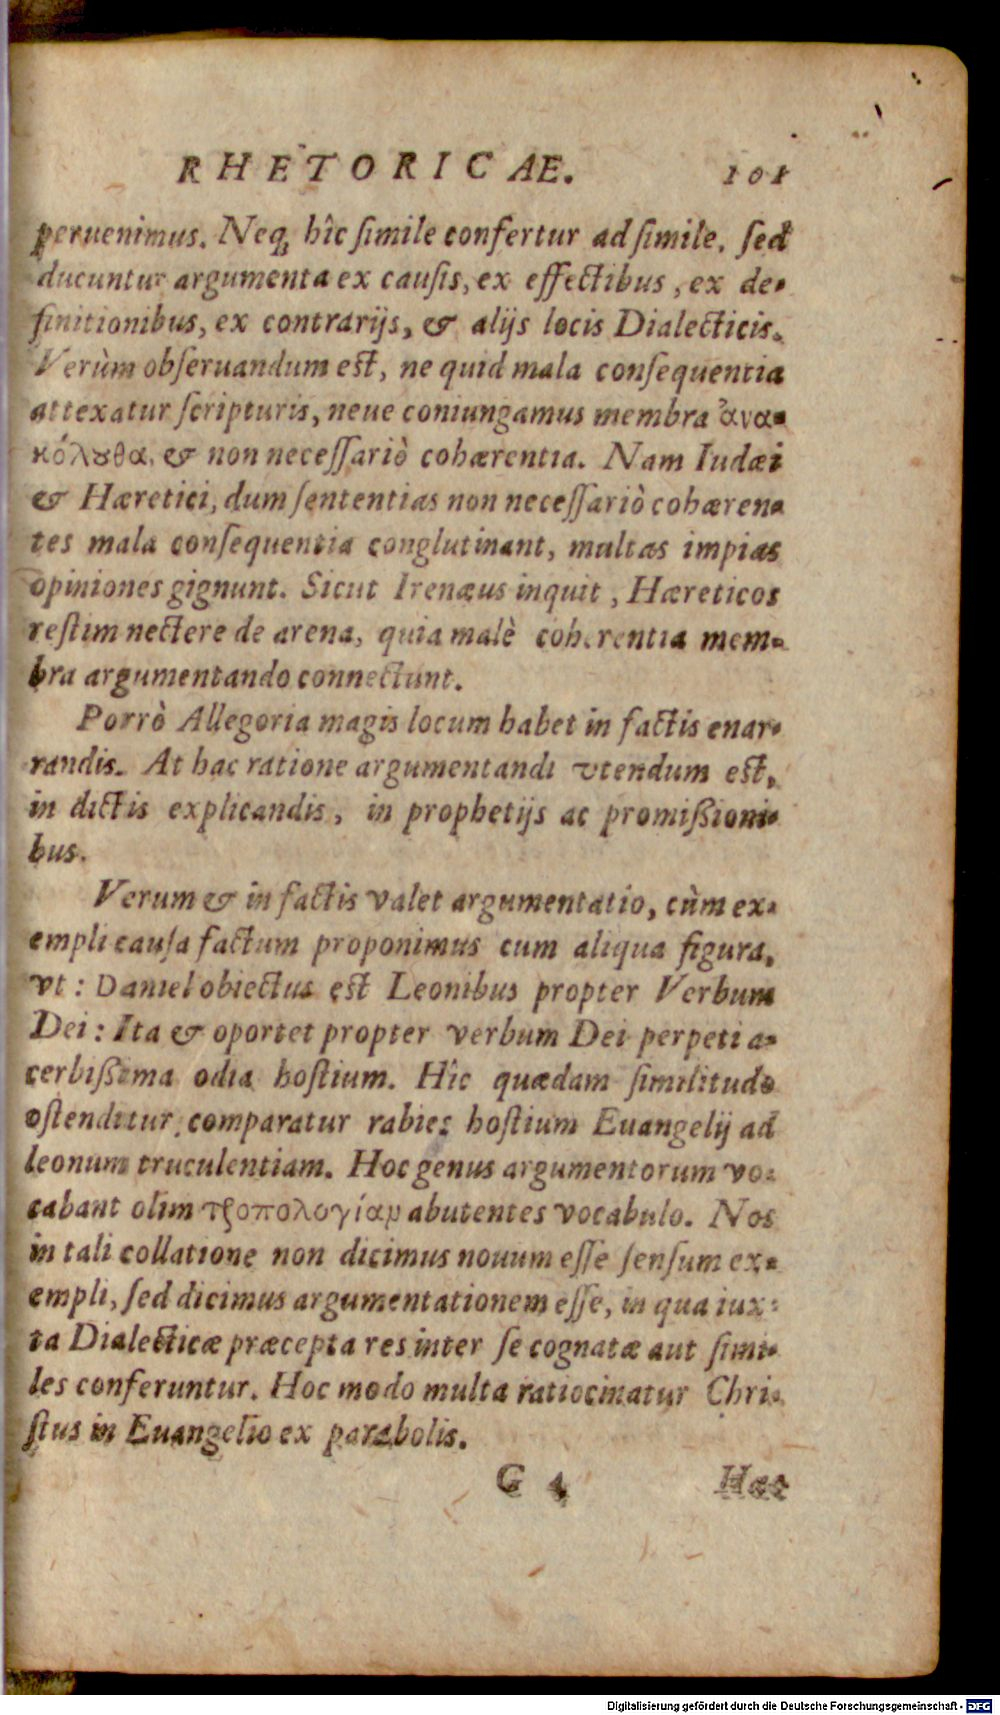 RHETORICAE. 101
peruenimus. Neqꝫ hîc ſimile confertur ad ſimile, ſed
ducuntur argumenta ex cauſis, ex effectibus, ex de-
finitionibus, ex contrarijs, & alijs locis Dialecticis.
Verùm obſeruandum eſt, ne quid mala conſequentia
attexatur ſcripturis, neue coniungamus membra ἀνα-
κόλȣθα, & non neceſſariò cohærentia. Nam Iudæi
& Hæretici, dum ſententias non neceſſariò cohæren-
tes mala conſequentia conglutinant, multas impias
opiniones gignunt. Sicut Irenæus inquit, Hæreticos
reſtim nectere de arena, quia malè coherentia mem-
bra argumentando connectunt.
Porrò Allegoria magis locum habet in factis enar-
randis. At hac ratione argumentandi vtendum eſt,
in dictis explicandis, in prophetijs ac promißioni-
bus.
Verum & in factis valet argumentatio, cùm ex-
empli cauſa factum proponimus cum aliqua figura,
vt: Daniel obiectus eſt Leonibus propter Verbum
Dei: Ita & oportet propter verbum Dei perpeti a-
cerbißima odia hoſtium. Hîc quædam ſimilitudo
oſtenditur, comparatur rabies hoſtium Euangelij ad
leonum truculentiam. Hoc genus argumentorum vo-
cabant olim τροπολογίαν abutentes vocabulo. Nos
in tali collatione non dicimus nouum eſſe ſenſum ex-
empli, ſed dicimus argumentationem eſſe, in qua iux-
ta Dialecticæ præcepta res inter ſe cognatæ aut ſimi-
les conferuntur. Hoc modo multa ratiocinatur Chri-
ſtus in Euangelio ex parabolis.
G 4 Hæc
Digitalisierung gefördert durch die Deutsche Forschungsgemeinschaft - DFG